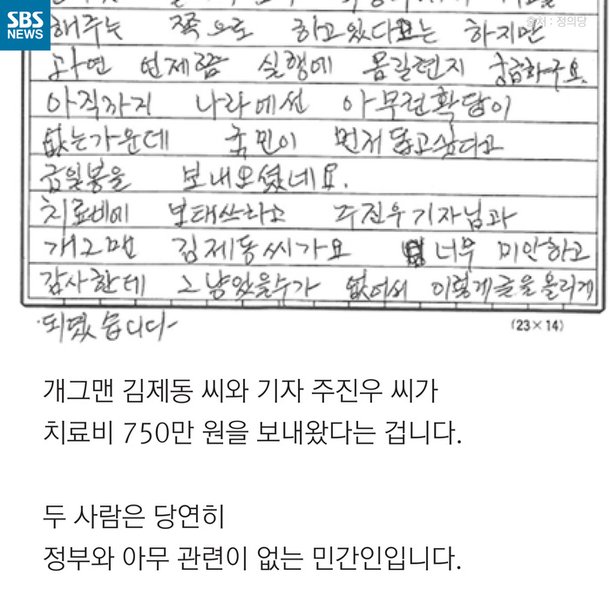 SBS
NEWS
출처 : 정의당
해주는 쪽으로 하고있다고는 하지만
과연 언제쯤 실행에 옮길런지 궁금하구요.
아직까지 나라에선 아무런확답이
없는가운데 국민이 먼저 돕고싶다고
금일봉을 보내오셨네요.
치료비에 보태쓰라고 주진우기자님과
개그맨 김제동씨가요 너무 미안하고
감사한데 그냥있을수가 없어서 이렇게글을올리게
되었습니다-
(23×14)
개그맨 김제동 씨와 기자 주진우 씨가
치료비 750만 원을 보내왔다는 겁니다.
두 사람은 당연히
정부와 아무 관련이 없는 민간인입니다.